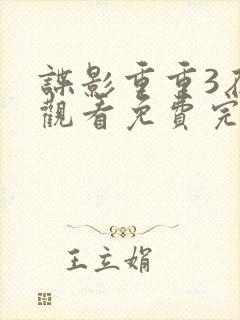 諜影重重3
觀看免費完
王立娟